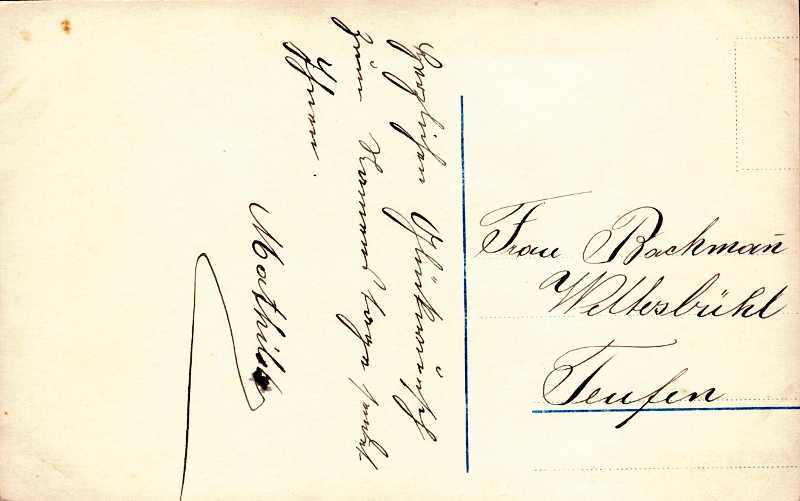 Herzlichen Glückwunsch
zum Namenstage sendet
Ihnen.
Mathilde
Frau Backman̄
Wettesbühl
Teufen